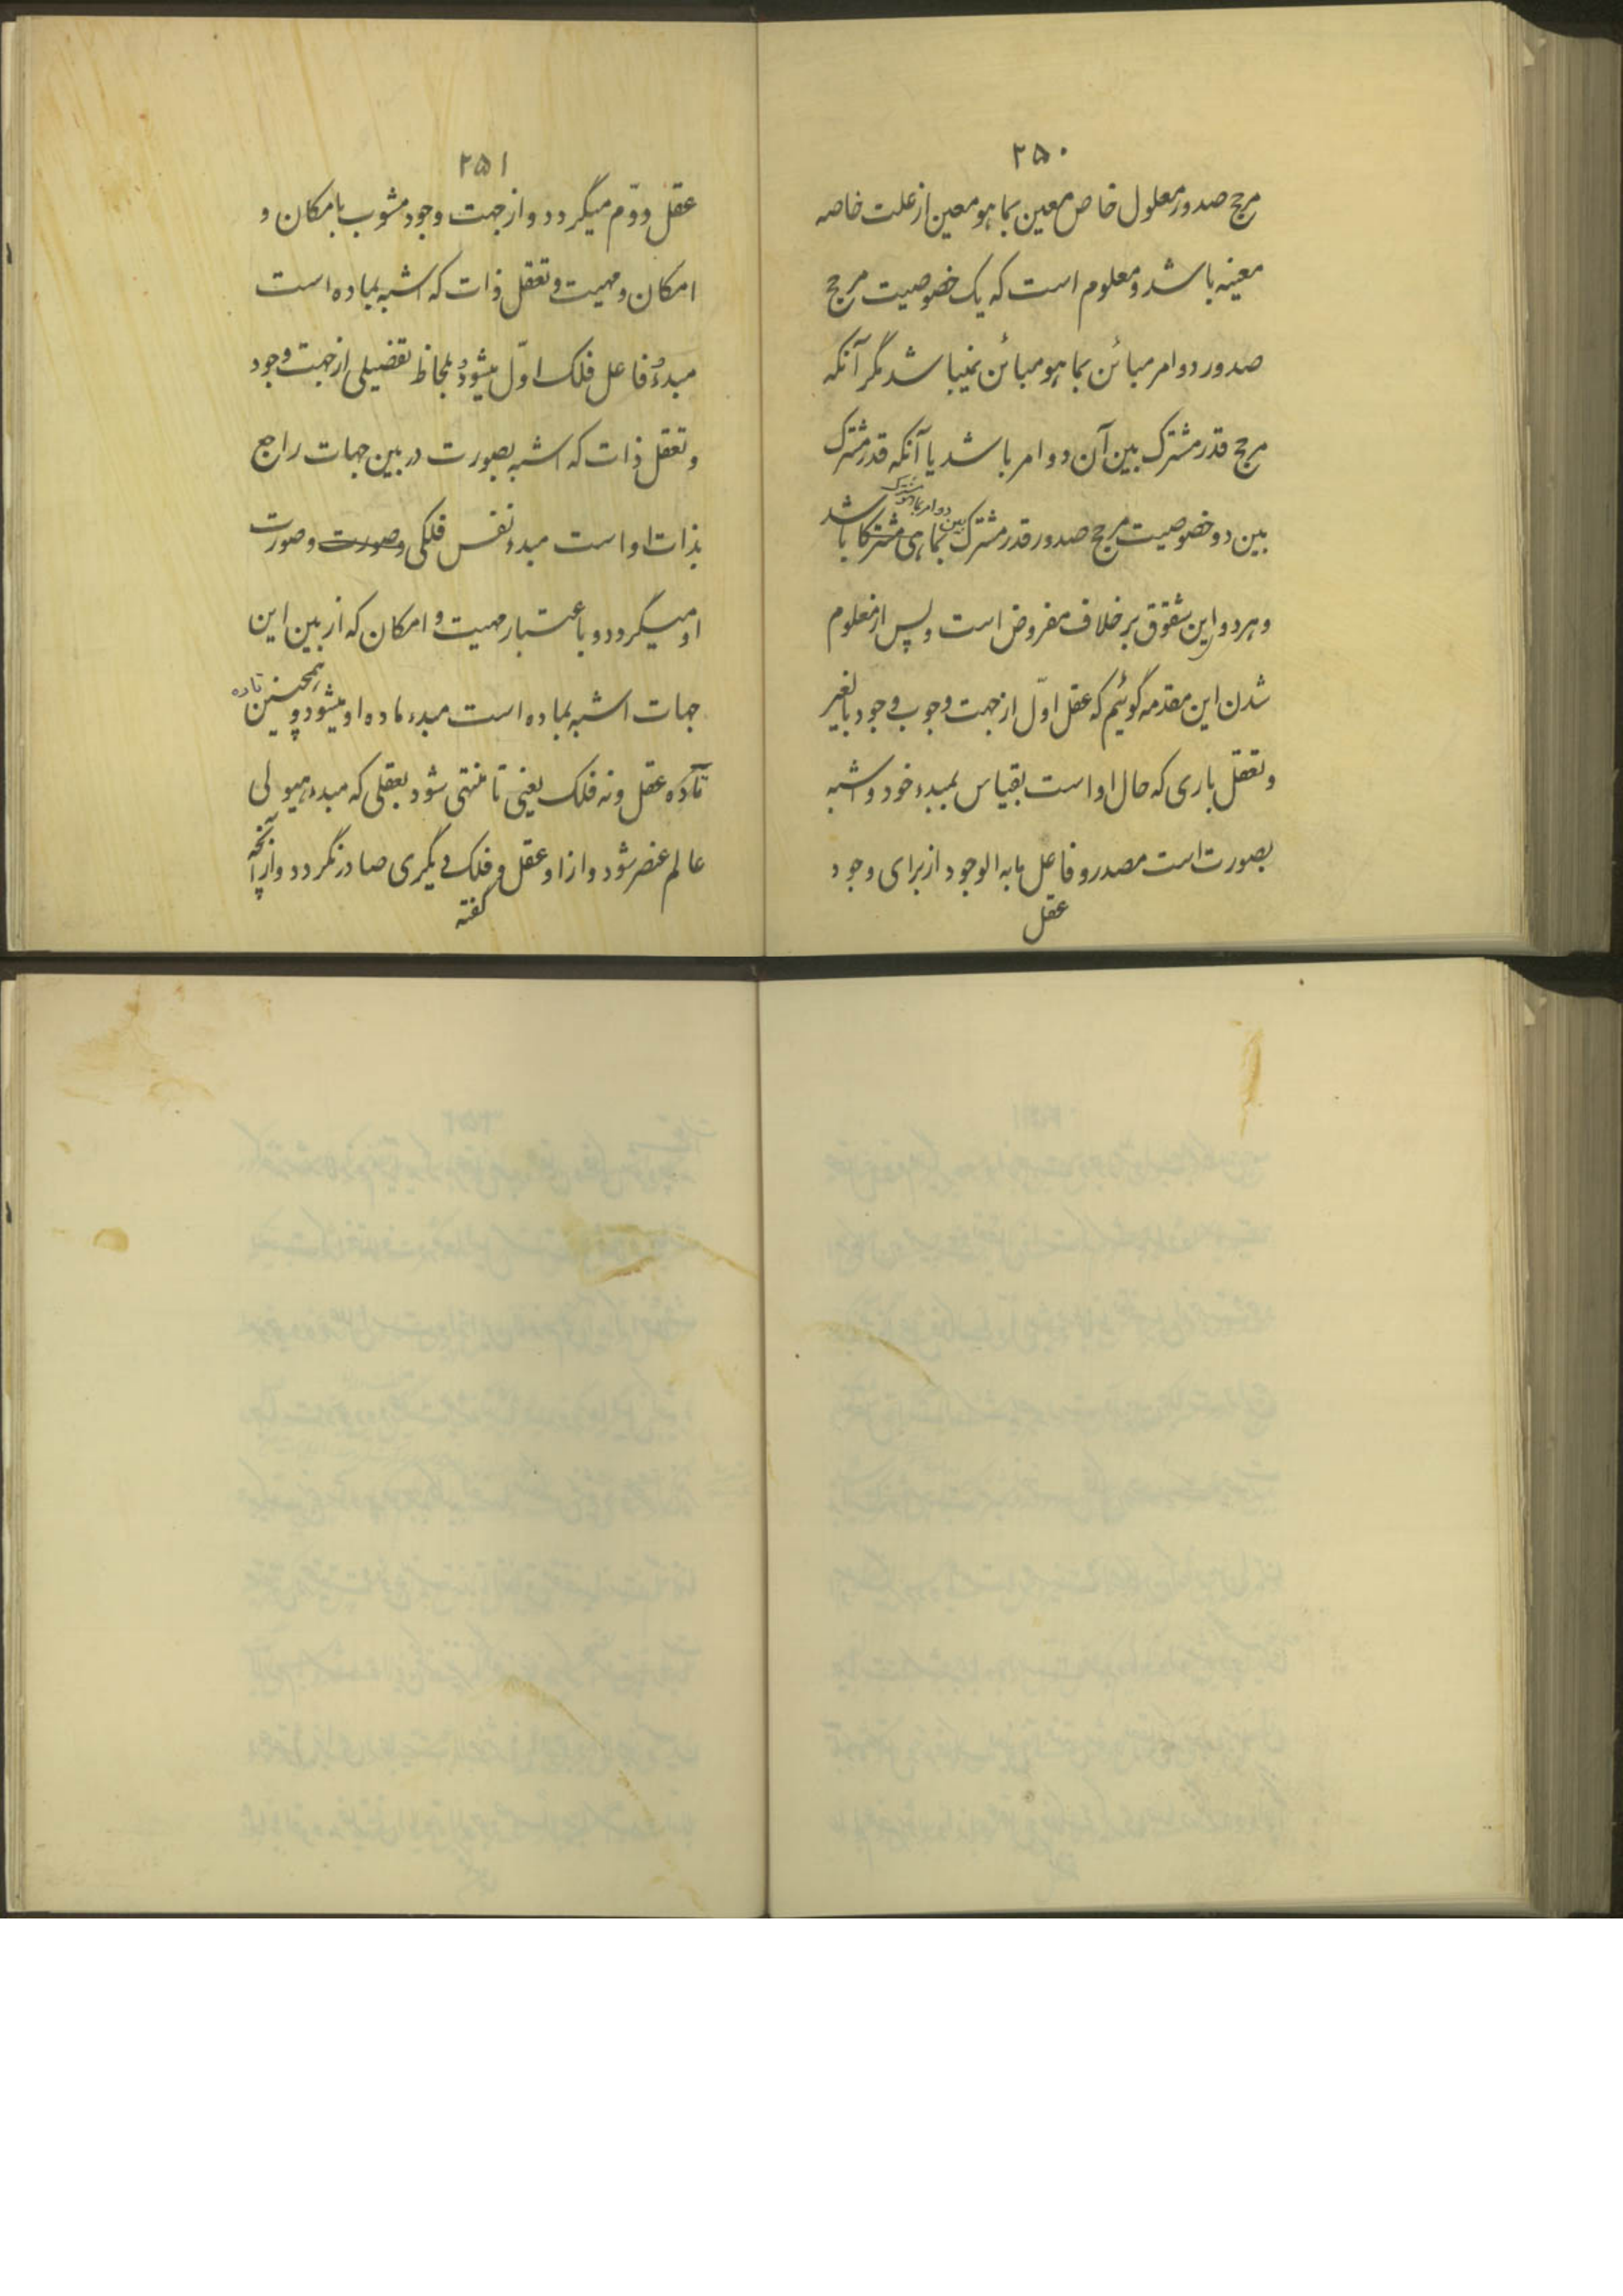 ۲۵۰
مرجح صدور معلول خاص معین بما هو معین از علت خاصه
معینه باشد و معلوم است که یک خصوصیت مرجح
صدور دو امر مبائن بما هو مبائن نمیباشد مگر آنکه
مرجح قدر مشترک بین آن دو امر باشد یا آنکه قدر مشترک
بین دو امر بما هو مشترک
بین دو خصوصیت مرجح صدور قدر مشترک بما هی مشترکا باشد
و هر دو این شقوق بر خلاف مفروض است و پس از معلوم
شدن این مقدمه گوئیم که عقل اوّل از جهت وجوب وجود بالغیر
و تعقل باری که حال او است بقیاس بمبدء خود و اشبه
بصورت است مصدر و فاعل ما به الوجود از برای وجود
عقل
۲۵۱
عقل دوّم میگردد و از جهت وجود مشوب بامکان و
امکان و مهیت و تعقل ذات که اشبه بماده است
مبدء و فاعل فلک اوّل میشود و بلحاظ تفصیلی از جهت وجود
و تعقل ذات که اشبه بصورت در بین جهات راجع
بذات او است مبدء نفس فلکی و صورت و صورت
او میگردد و باعتبار مهیت و امکان که از بین این
جهات اشبه بماده است مبدء ماده او میشود و همچنین
تا ده عقل و نه فلک یعنی تا منتهی شود بعقلی که مبدء هیولی
عالم عنصر شود و از او عقل و فلک دیگری صادر نگردد و از آنچه
گفته